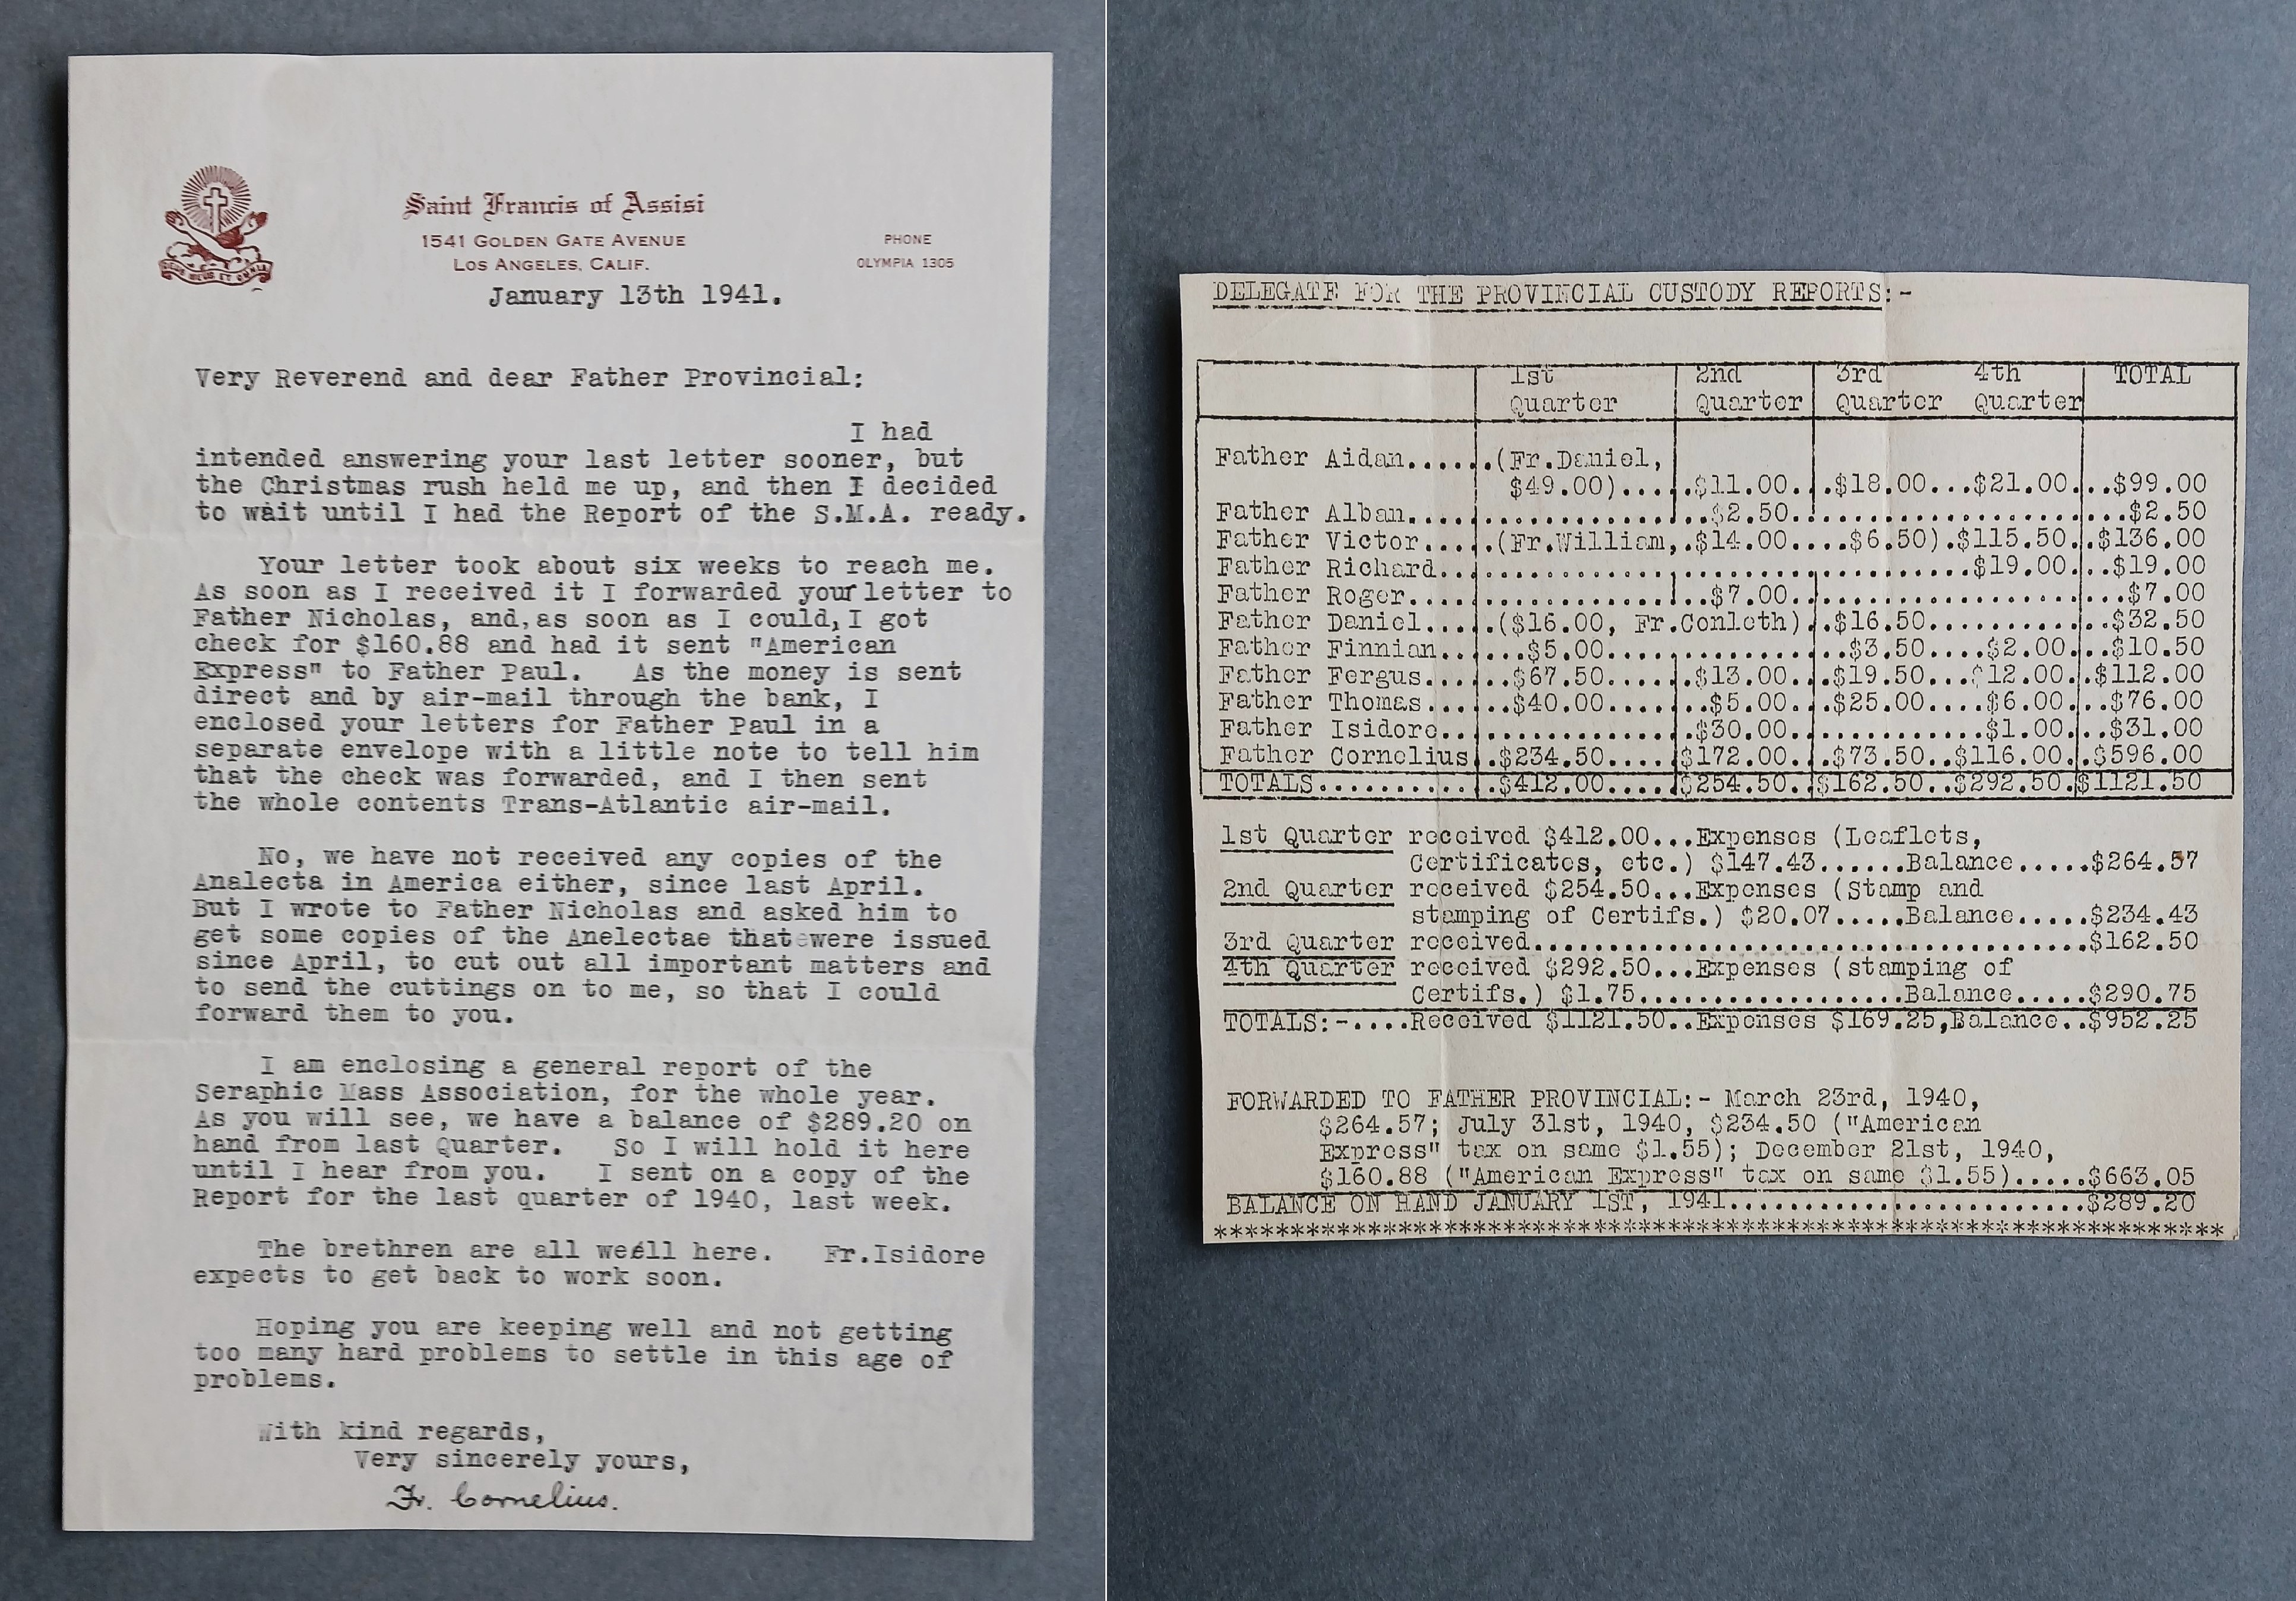 DEUS MEUS ET OMNIA
Saint Francis of Assisi
1541 GOLDEN GATE AVENUE
LOS ANGELES, CALIF.
PHONE
OLYMPIA 1305
January 13th 1941.
Very Reverend and dear Father Provincial:
I had
intended answering your last letter sooner, but
the Christmas rush held me up, and then I decided
to wait until I had the Report of the S.M.A. ready.
Your letter took about six weeks to reach me.
As soon as I received it I forwarded your letter to
Father Nicholas, and, as soon as I could, I got
check for $160.88 and had it sent "American
Express" to Father Paul. As the money is sent
direct and by air-mail through the bank, I
enclosed your letters for Father Paul in a
separate envelope with a little note to tell him
that the check was forwarded, and I then sent
the whole contents Trans-Atlantic air-mail.
No, we have not received any copies of the
Analecta in America either, since last April.
But I wrote to Father Nicholas and asked him to
get some copies of the Anelectae that were issued
since April, to cut out all important matters and
to send the cuttings on to me, so that I could
forward them to you.
I am enclosing a general report of the
Seraphic Mass Association, for the whole year.
As you will see, we have a balance of $289.20 on
hand from last Quarter. So I will hold it here
until I hear from you. I sent on a copy of the
Report for the last quarter of 1940, last week.
The brethren are all weéll here. Fr.Isidore
expects to get back to work soon.
Hoping you are keeping well and not getting
too many hard problems to settle in this age of
problems.
With kind regards,
Very sincerely yours,
Fr. Cornelius.
DELEGATE FOR THE PROVINCIAL CUSTODY REPORTS:-
1st 2nd 3rd 4th TOTAL
Quarter Quarter Quarter Quarter
Father Aidan......(Fr.Daniel,
$49.00).....$11.00...$18.00...$21.00...$99.00
Father Alban....................$2.50......................$2.50
Father Victor.....(Fr.William,.$14.00....$6.50).$115.50..$136.00
Father Richard...................................$19.00...$19.00
Father Roger....................$7.00......................$7.00
Father Daniel.....($16.00, Fr.Conleth)..$16.50............$32.50
Father Finnian......$5.00....................$3.50....$2.00...$10.50
Father Fergus......$67.50......$13.00...$19.50...$12.00..$112.00
Father Thomas......$40.00.......$5.00...$25.00....$6.00...$76.00
Father Isidore.................$30.00.............$1.00...$31.00
Father Cornelius..$234.50.....$172.00...$73.50..$116.00..$596.00
TOTALS............$412.00.....$254.50..$162.50..$292.50.$1121.50
1st Quarter received $412.00...Expenses (Leaflets,
Certificates, etc.) $147.43......Balance.....$264.57
2nd Quarter received $254.50...Expenses (Stamp and
stamping of Certifs.) $20.07.....Balance.....$234.43
3rd Quarter received....................................$162.50
4th Quarter received $292.50...Expenses (stamping of
Certifs.) $1.75.................Balance.....$290.75
TOTALS:-....Received $1121.50..Expenses $169.25,Balance..$952.25
FORWARDED TO FATHER PROVINCIAL:- March 23rd, 1940,
$264.57; July 31st, 1940, $234.50 ("American
Express" tax on same $1.55); December 21st, 1940,
$160.88 ("American Express" tax on same $1.55).....$663.05
BALANCE ON HAND JANUARY 1ST, 1941.......................$289.20
****************************************************************